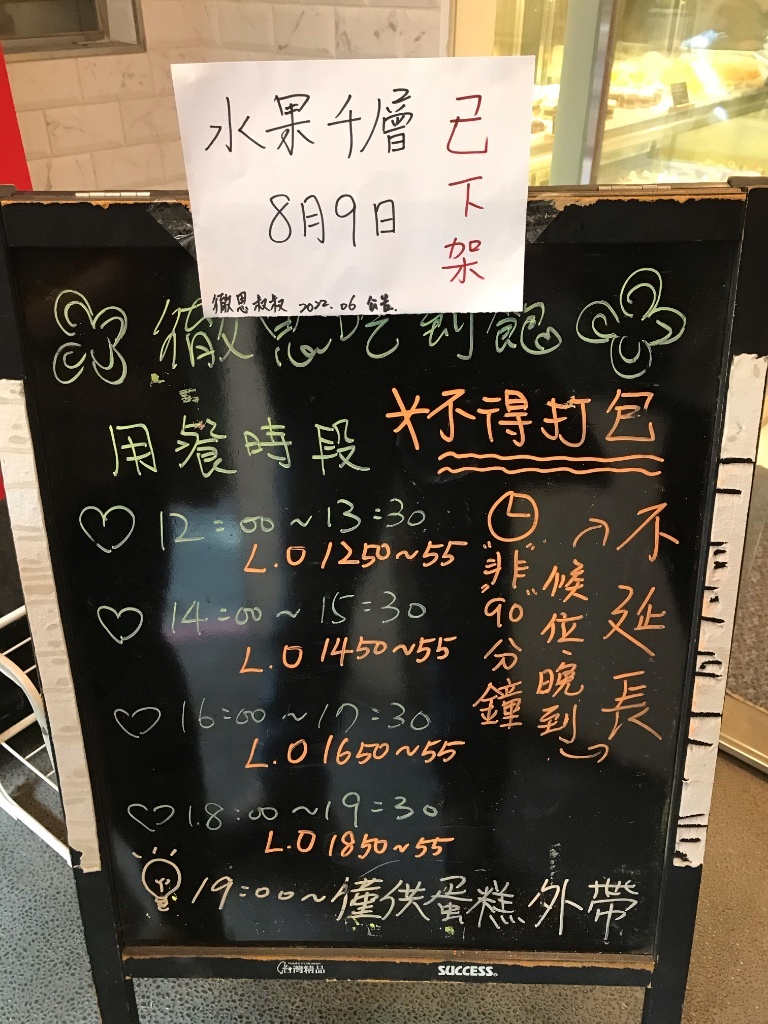 水果千層
8月9日
已下架
徹思叔叔 2022.06
徹思吃到飽
用餐時段
*不得打包
12:00~13:30
L.O 1250~55
14:00~15:30
L.O 1450~55
16:00~17:30
L.O 1650~55
18:00~19:30
L.O 1850~55
"非"90分鐘
候位、晚到
不延長
19:00~僅供蛋糕外帶
台灣精品
SUCCESS